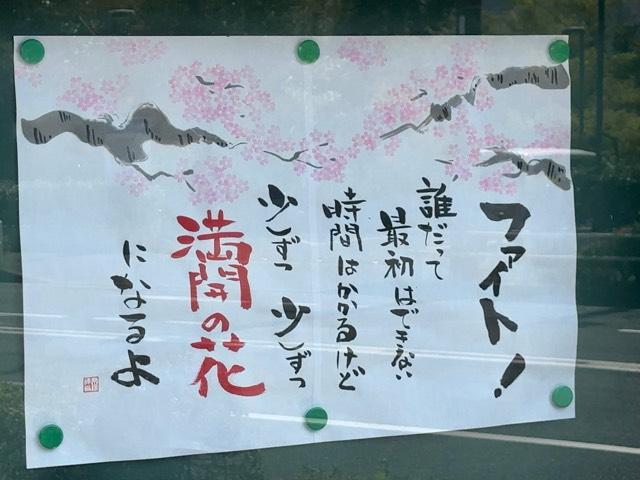 ファイト!
誰だって
最初はできない
時間はかかるけど
少しずつ少しずつ
満開の花
になるよ